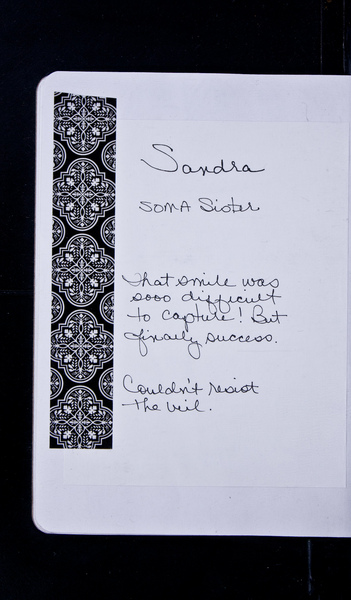 Sandra
SOMA Sister
that smile was
sooo difficult
to capture! But
finally success.
Couldn't resist
the veil.